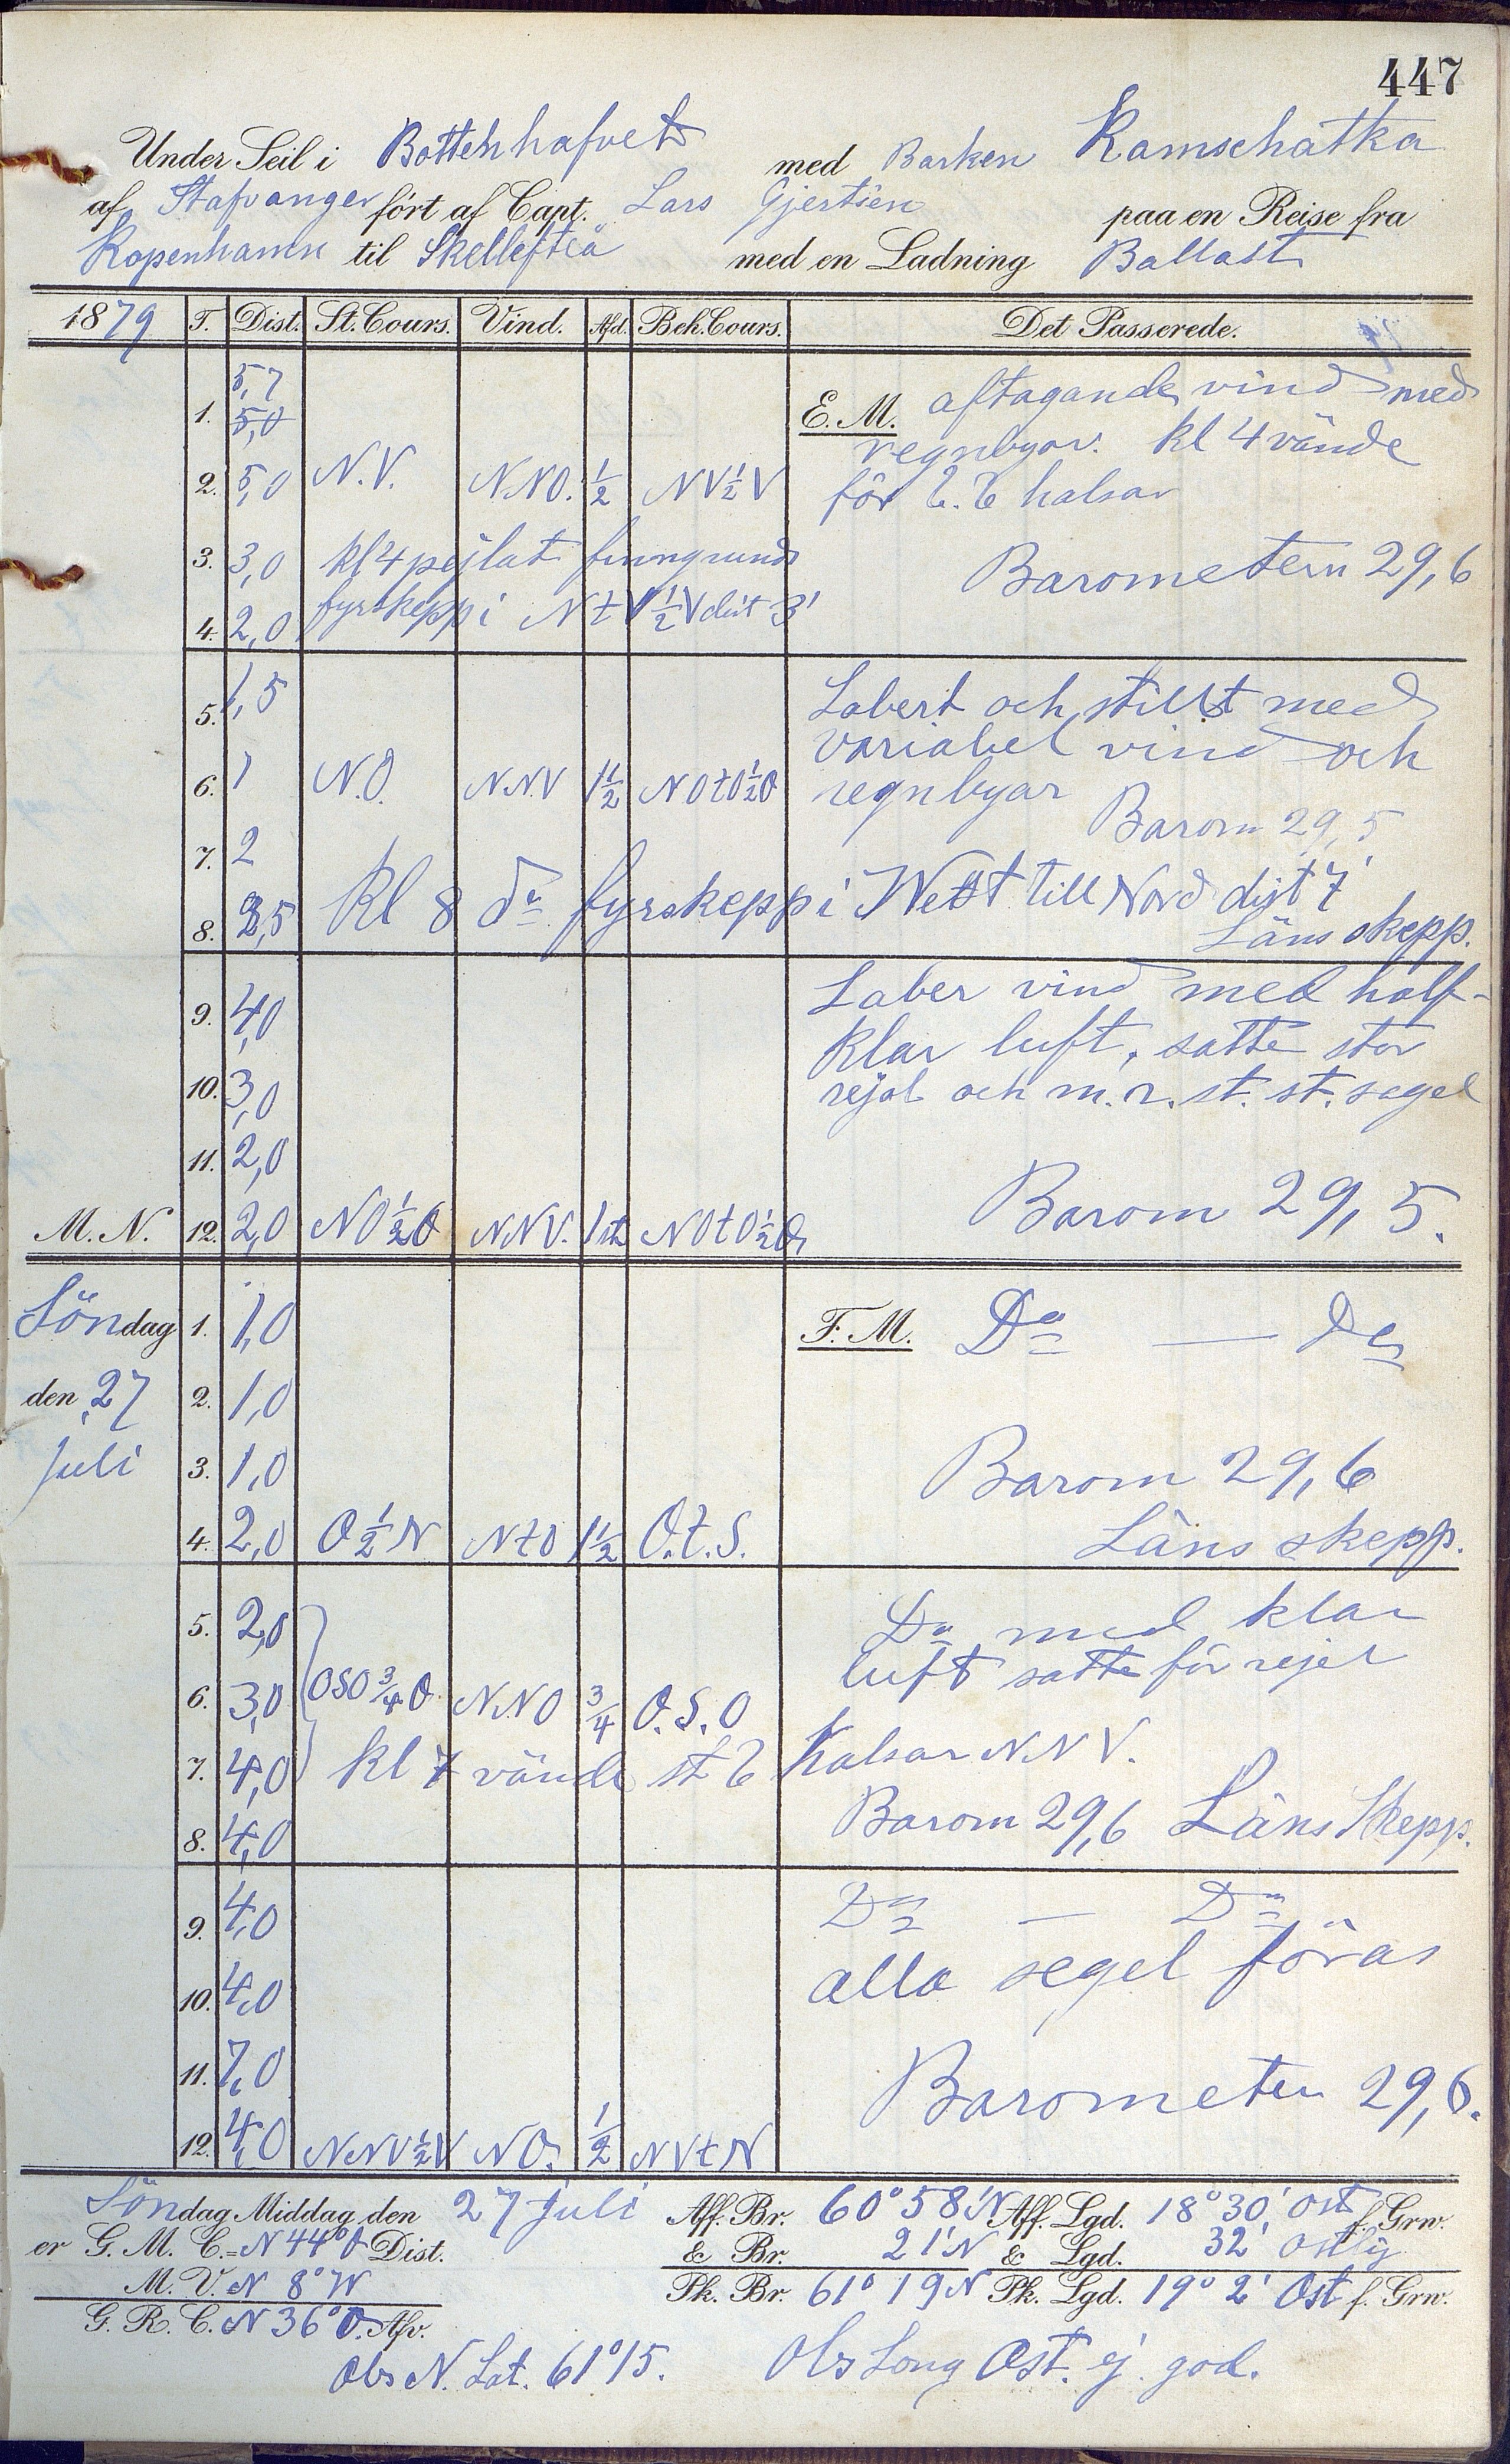 447
Under Seil i Bottenhafvet med Barken Kamschatka
af Stafvanger fört af Capt. Lars Gjertsen paa en Reise fra
Kopenhamn til Skellefteå med en Ladning Ballast
1879 T. Dist. St. Cours. Vind. Afd. Beh. Cours. Det Passerede.
5,7 E. M. aftagande vind med
1. 5,0 regnbyar. kl 4 vände
2. 5,0 N.V. NNO. 1/2 NV 1/2 V för B.B halsar
3. 3,0 kl 4 pejlat finngrunds Barometern 29,6
4. 2,0 fyrskepp i NtV 1/2 V dist 3'
5. 1,5 Labert och stillt med
variabel vind och
6. 1 N.O. N.N.V 1 1/2 NOtO 1/2 O regnbyar
7. 2 Barom 29,5
8. 2,5 Kl 8 Do fyrskepp i West till Nord dist 7'
Läns skepp.
9. 4,0 Laber vind med half-
klar luft, satte stor
10. 3,0 rejel och m. r. st. st. segel
11. 2,0
M. N. 12. 2,0 NO 1/2 O NNV. 1 1/2 NOtO 1/2 O Barom 29,5.
Söndag 1. 1,0 F. M. Do — Do
den 27 2. 1,0
juli 3. 1,0 Barom 29,6
4. 2,0 O 1/2 N NtO 1 1/2 O.t.S. Läns skepp.
5. 2,0 Do med klar
luft satte för rejel
6. 3,0 OSO 3/4 O N.N.O 3/4 O.S.O
7. 4,0 kl 7 vände st B halsar N N V.
8. 4,0 Barom 29,6 Läns Skepp.
9. 4,0 Do — Do
10. 4,0 alla segel föras
11. 7,0 Barometern 29,6.
12. 4,0 NNV 1/2 V NO. 1/2 NVtN
Söndag Middag den 27 juli Aff. Br. 60° 58' N Aff. Lgd. 18° 30' Ost f. Grw.
er G. M. C. = N 44° O Dist. & Br. 21' N & Lgd. 32' Ostlig
M. V. N 8° W Pk. Br. 61° 19 N Pk. Lgd. 19° 2' Ost f. Grw.
G. R. C. N 36° O. Afv.
Obs N. Lat. 61° 15. Obs Long Ost. ej god.